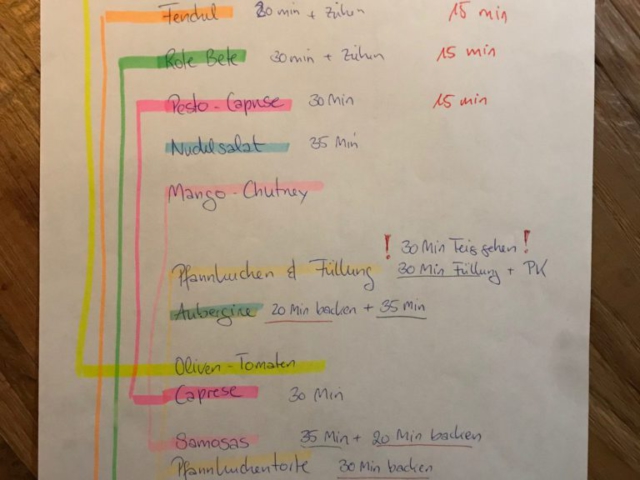 Fenchel 30 min + Ziehen 15 min
Rote Bete 30 min + Ziehen 15 min
Pesto-Caprese 30 Min 15 min
Nudelsalat 35 Min
Mango-Chutney
! 30 Min Teig gehen !
Pfannkuchen & Füllung 30 Min Füllung + PK
Aubergine 20 Min backen + 35 Min
Oliven-Tomaten
Caprese 30 Min
Samosas 35 Min + 20 Min backen
Pfannkuchentorte 30 Min backen